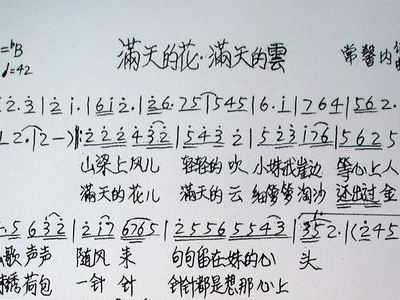 1=♭B 滿天的花·滿天的雲
♩=42 常馨内
2.3|2 i.|6i2.|26.75|545|6.i|764|562.
12.|2-)|:222432|5432|523i76|5625
山梁上风儿 轻轻的吹 小妹我崖边 等心上人
滿天的花儿 滿天的云 细箩箩淘沙 还出过金
5632|2i76765|25565543|352.|(245
歌声声 随风来 句句留在妹的心 头
绣荷包 一针针 针针都是想那心上